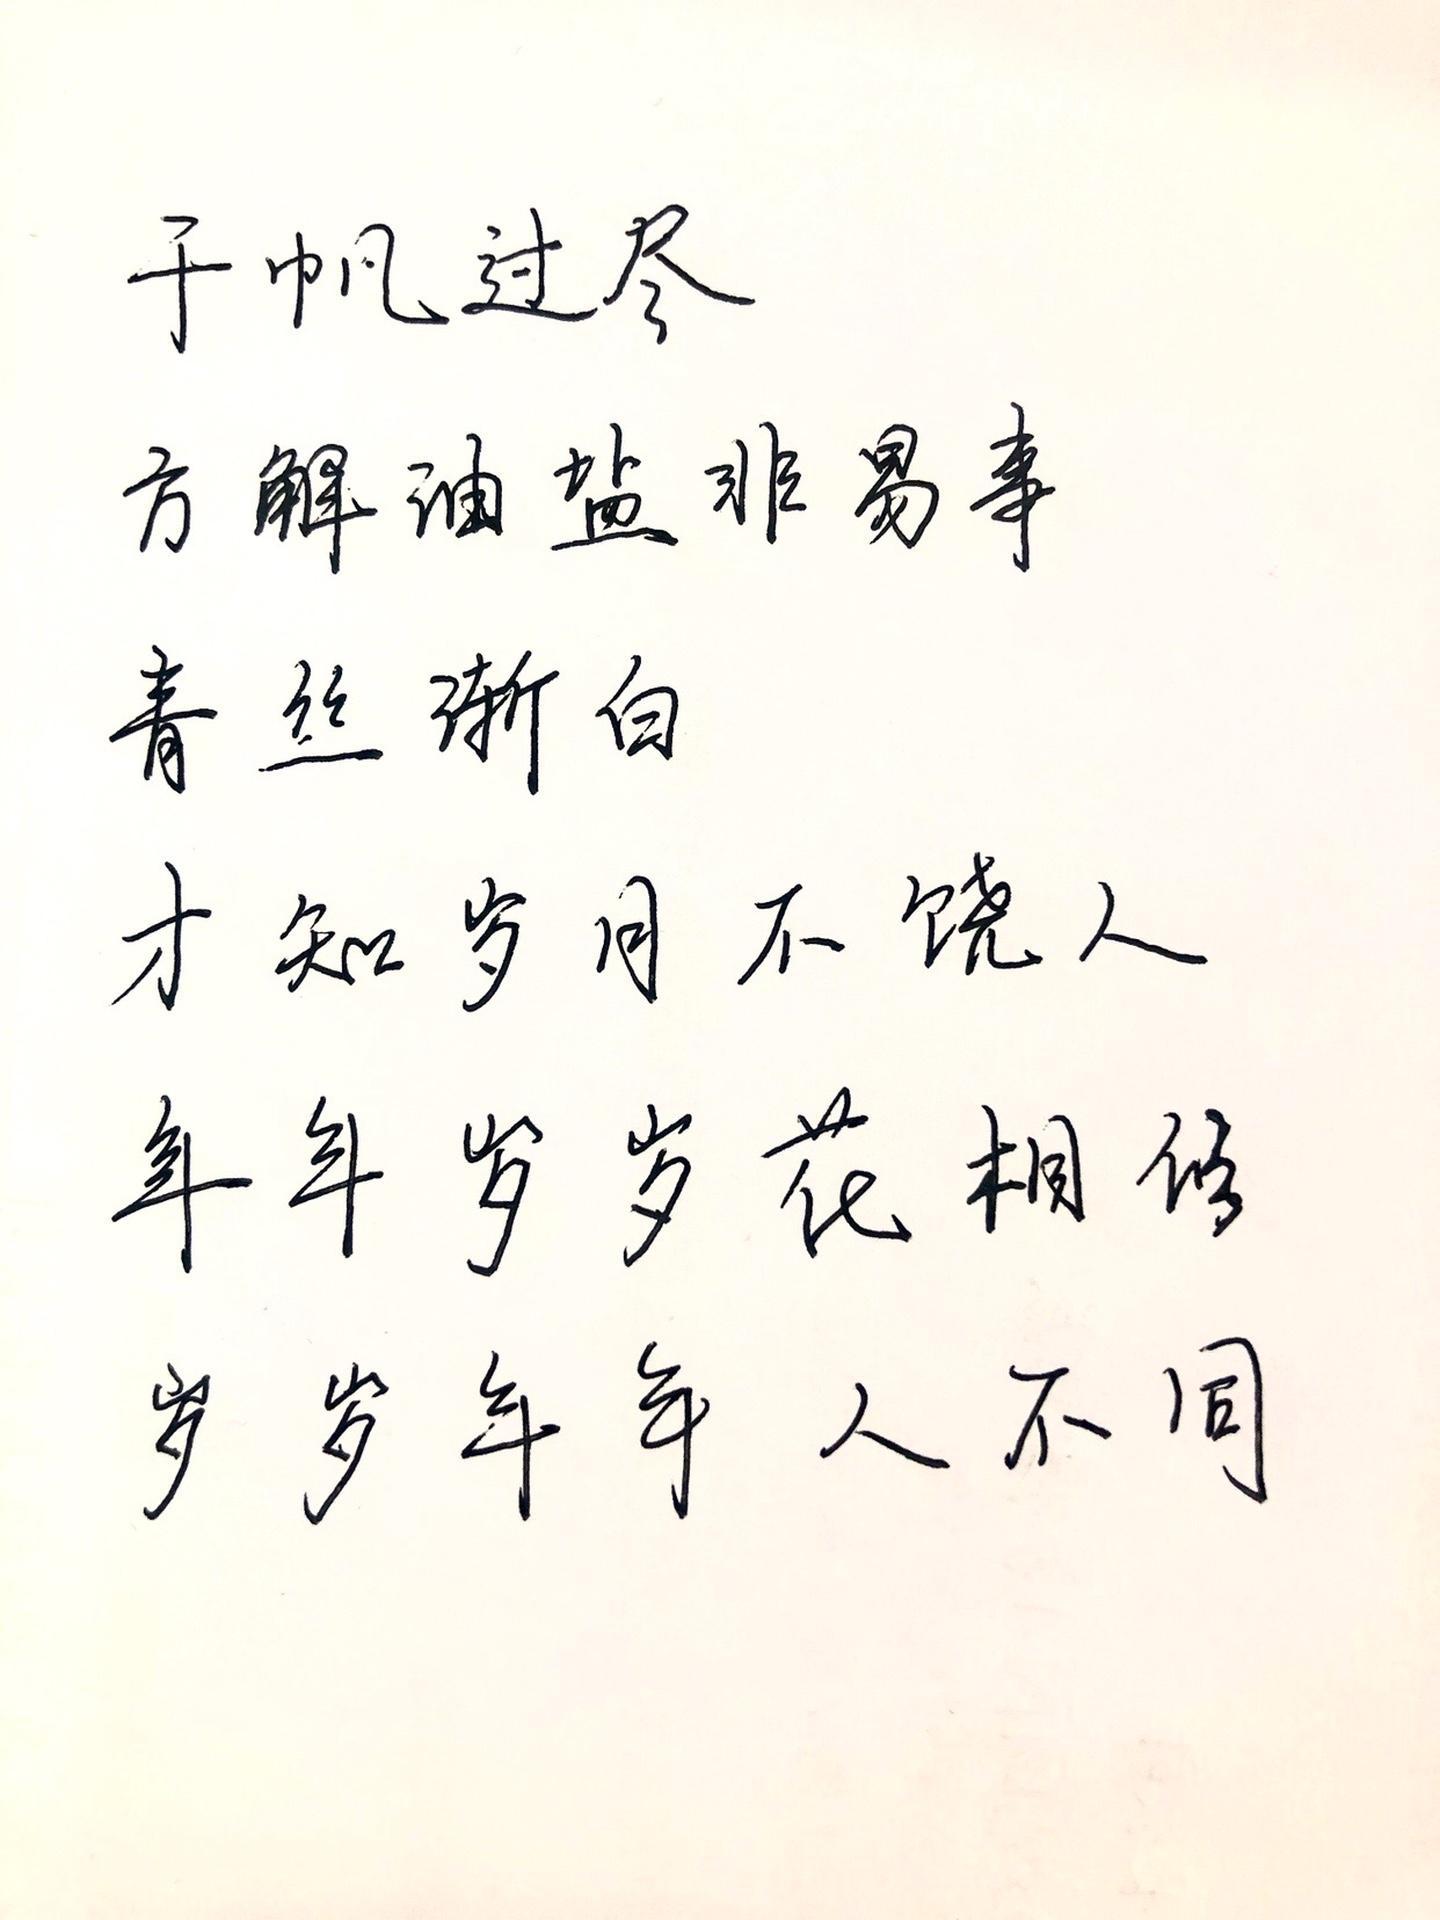 千帆过尽
方解油盐非易事
青丝渐白
才知岁月不饶人
年年岁岁花相似
岁岁年年人不同